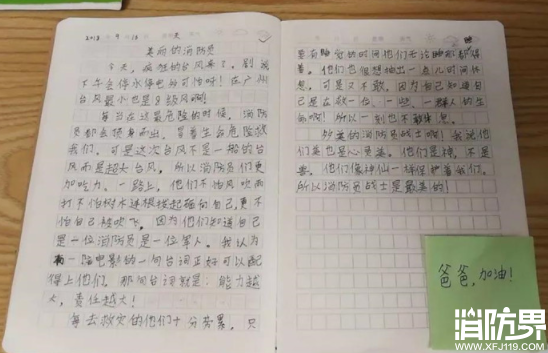 2018 9 18
美丽的消防员
今天,疯狂的台风来了,剧说
下午会停水停电多可怕呀!在广州
台风最小也是8级风啊!
每当在这最危险的时候,消防
员都会挺身而出,冒着生命危险救
我们,可是这次台风不是一般的台
风而是超大台风,所以消防员们更
加吃力。一路上,他们不怕风吹雨
打不怕树木连根拔起砸向自己,更不
怕自己被吹飞。因为他们知道自己
是一位消防员是一位军人。我认为
有一陪电影的一句台词正好可以配
得上他们。那句台词就是:能力越
大,责任越大!
每去救灾的他们十分劳累,只
要有
觉的时间他们无论
都得
着。他们也很想抽出一点儿时间休
息,可是又不敢,因为自己知道自
己是在救一位、一些、一群人的生
命啊!所以一刻也不能休息。
外美的消防员战士啊!我说他
们美也是心灵美。他们是神,不是
兽。他们像神仙一样保护着我们。
所以消防员战士是最美的!
爸爸,加油!
消防界
WWW.XFJ119.COM